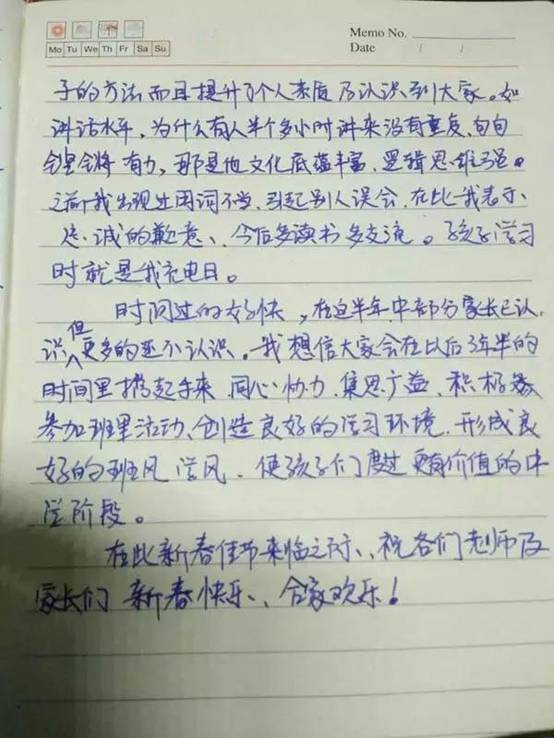 Memo No.
Mo Tu We Th Fr Sa Su
Date / /
子的方法而且提升了个人素质及认识到大家。如
讲话水平,为什么有人半个多小时讲来没有重复、句句
铿锵有力,那是他文化底蕴丰富、逻辑思维强。
之前我出现过用词不当,引起别人误会,在此我表示
忠诚的歉意、今后多读书多交流。孩子学习
时就是我充电日。
时间过的好快,在这半年中部分家长已认
识但更多的还不认识。我想信大家会在以后3年半的
时间里携起手来 同心协力、集思广益、积极
参加班里活动、创造良好的学习环境,形成良
好的班风 学风.使孩子们度过更有价值的中
学阶段。
在此新春佳节来临之际、祝各们老师及
家长们 新春快乐、合家欢乐!